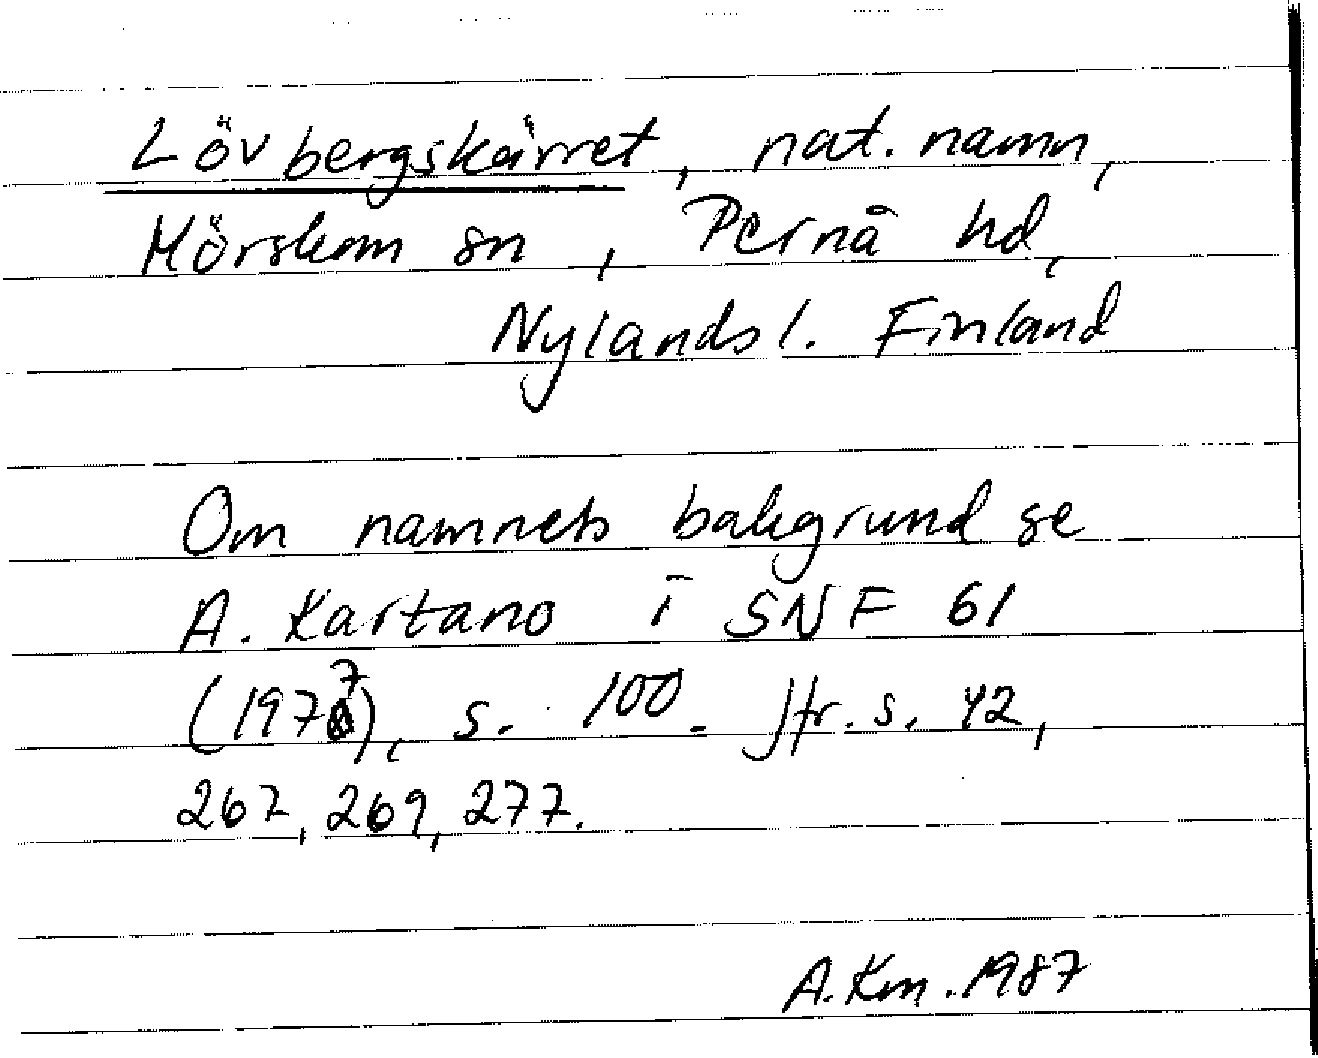 Lövbergskärret, nat. namn,
Mörskom sn, Pernå hd,
Nylands l. Finland
Om namnets bakgrund se
A. Kartano i SNF 61
(1977), s. 100. Jfr. s. 42,
267, 269, 277.
A. Km. 1987